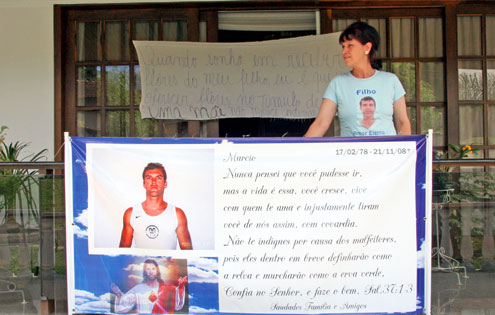 Quando sonho em receber
flores do meu filho eu é que
ofereço flores no tumulo de
uma
Filho
Amor Eterno
Marcio 17/02/78 - 21/11/08
Nunca pensei que você pudesse ir,
mas a vida é essa, você cresce, vive
com quem te ama e injustamente tiram
você de nós assim, com covardia.
Não te indignes por causa dos malfeitores,
pois eles dentro em breve definharão como
a relva e murcharão como a erva verde.
Confia no Senhor, e faze o bem, Sal.37:1-3
Saudades Família e Amigos